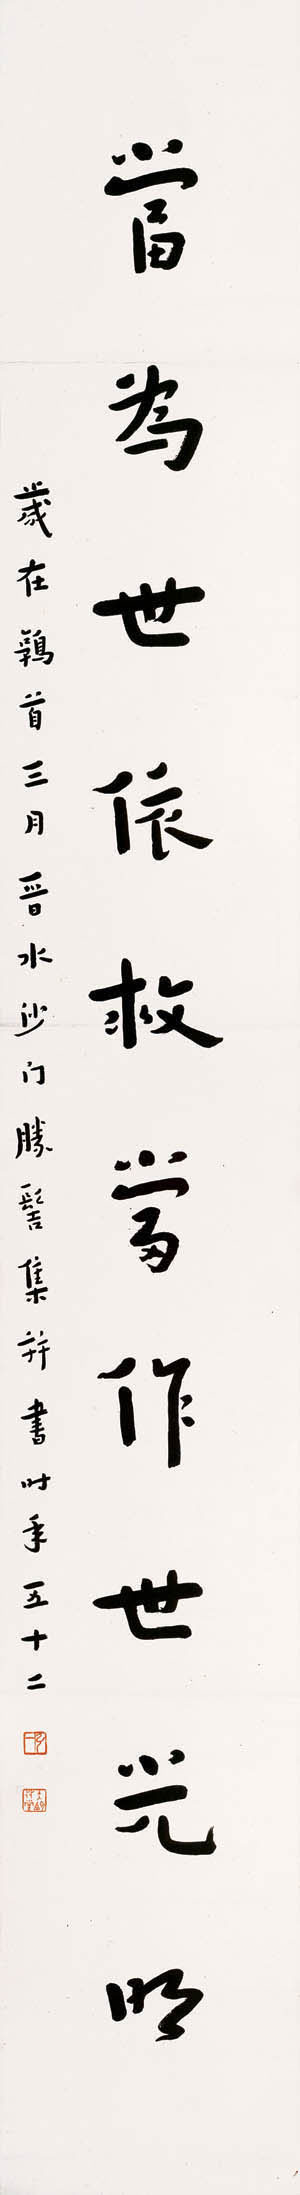 當為世依救當作世光明
歲在鶉首三月晉水沙门勝髻集并書时年五十二